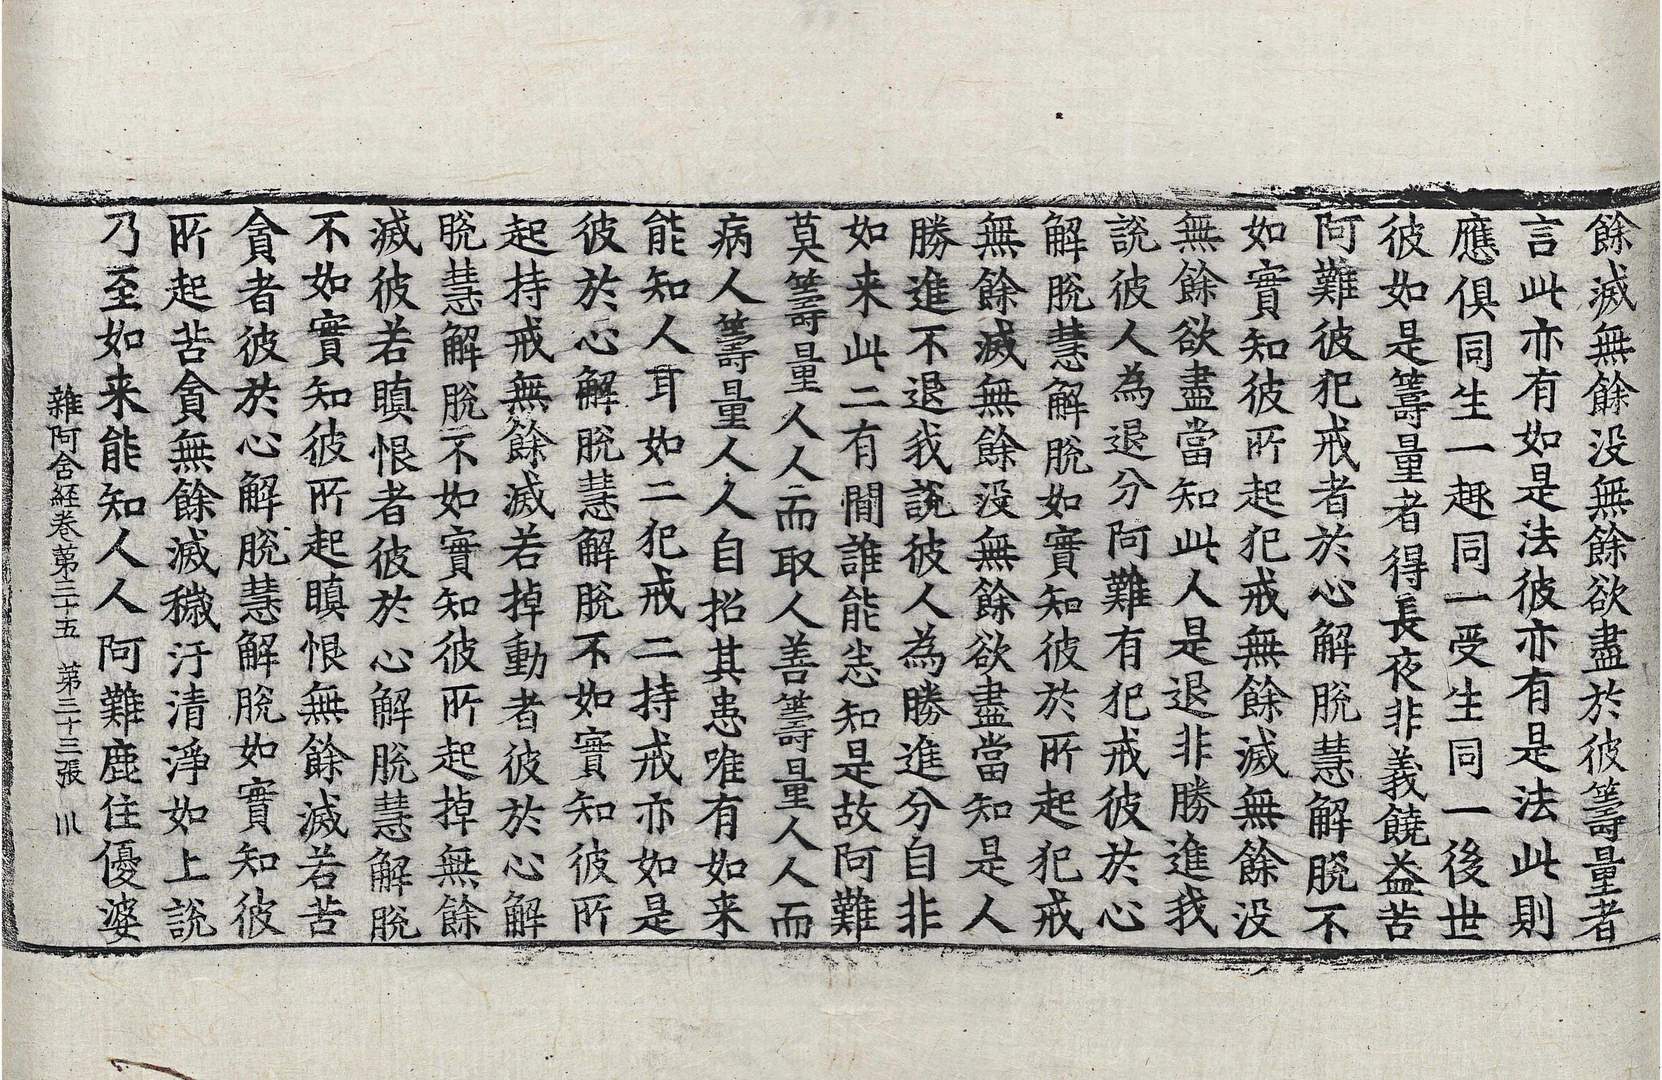 餘滅無餘没無餘欲盡於彼籌量者
言此亦有如是法彼亦有是法此則
應俱同生一趣同一受生同一後世
彼如是籌量者得長夜非義饒益苦
阿難彼犯戒者於心解脫慧解脫不
如實知彼所起犯戒無餘滅無餘没
無餘欲盡當知此人是退非勝進我
說彼人為退分阿難有犯戒彼於心
解脫慧解脫如實知彼於所起犯戒
無餘滅無餘没無餘欲盡當知是人
勝進不退我說彼人為勝進分自非
如来此二有閒誰能悉知是故阿難
莫籌量人人而取人善籌量人人而
病人籌量人人自招其患唯有如来
能知人耳如二犯戒二持戒亦如是
彼於心解脫慧解脫不如實知彼所
起持戒無餘滅若掉動者彼於心解
脫慧解脫不如實知彼所起掉無餘
滅彼若瞋恨者彼於心解脫慧解脫
不如實知彼所起瞋恨無餘滅若苦
貪者彼於心解脫慧解脫如實知彼
所起苦貪無餘滅穢汙清淨如上說
乃至如来能知人人阿難鹿住優婆
雜阿含経卷第三十五 第三十三張 川